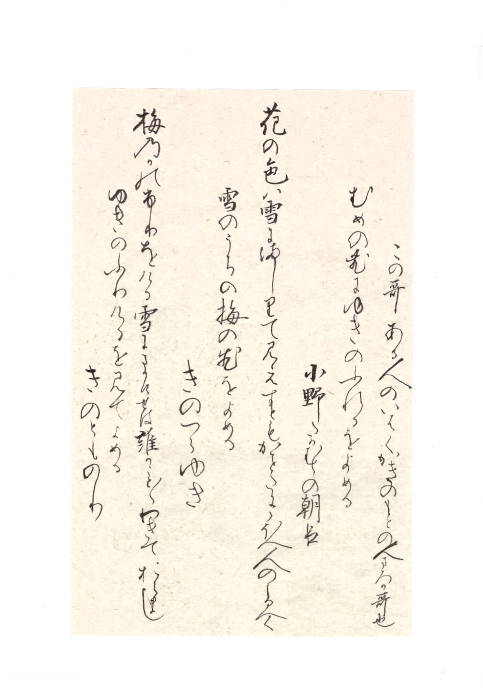 この哥ある人のいはくかきのもとの人まろか哥也
むめの花にゆきのふれるをよめる
小野たかむらの朝臣
花の色は雪にましりて見えすともかをたににほへ人のしるへく
雪のうちの梅の花をよめる
きのつらゆき
梅のかのふりをける雪にまかひせは誰かこと〳〵わきておらまし
ゆきのふりけるを見てよめる
きのとものり